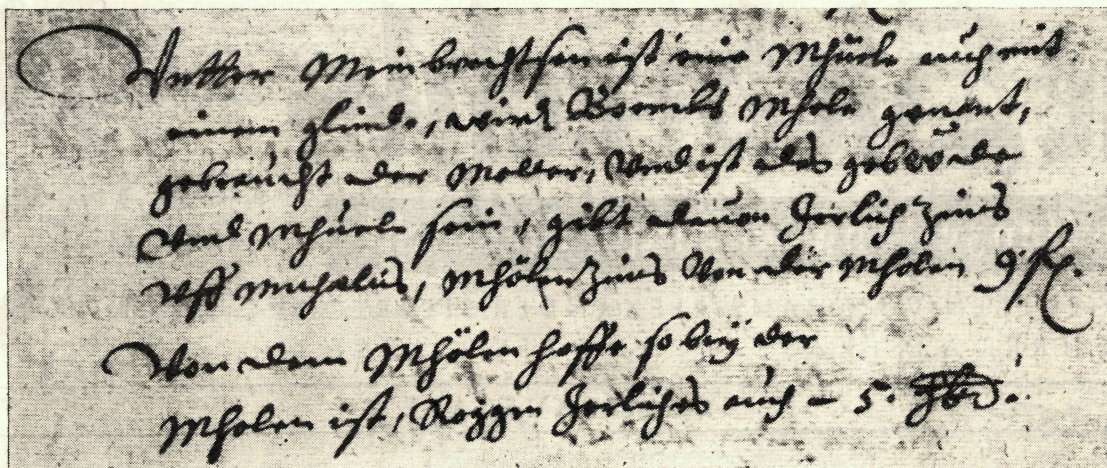 Vnder Meinbrechtsen ist eine Mhüele auch mit
einem glinde, wird Bormbts Mhole genant,
gebraucht der Molter, Vnd ist das gebewde
Vnd Mhüele sein, gibt dauon Jerlich Zins
Vff Michaelis, MhölenZins Von der Mholen 9 fl.
Von dem Mhölen hoffe so beÿ der
Mholen ist, Roggen Jerliches auch – 5.